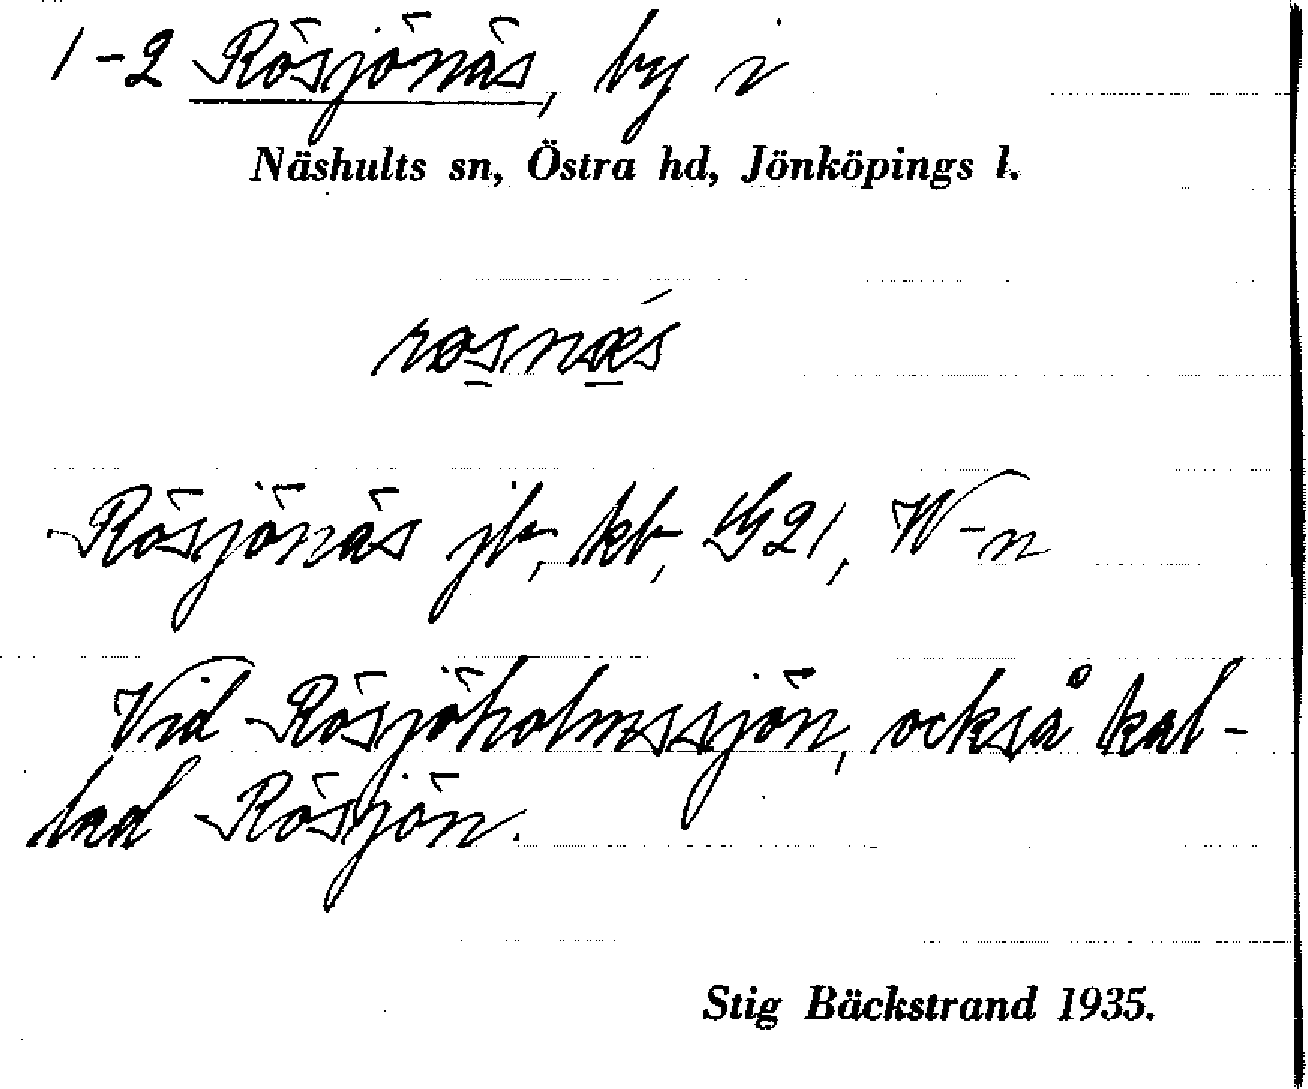 1-2 Rösjönäs, by i
Näshults sn, Östra hd, Jönköpings l.
røsnæ´s
Rösjönäs jb, kb, G21, W-n
Vid Rösjöholmssjön, också kal-
lad Rösjön.
Stig Bäckstrand 1935.